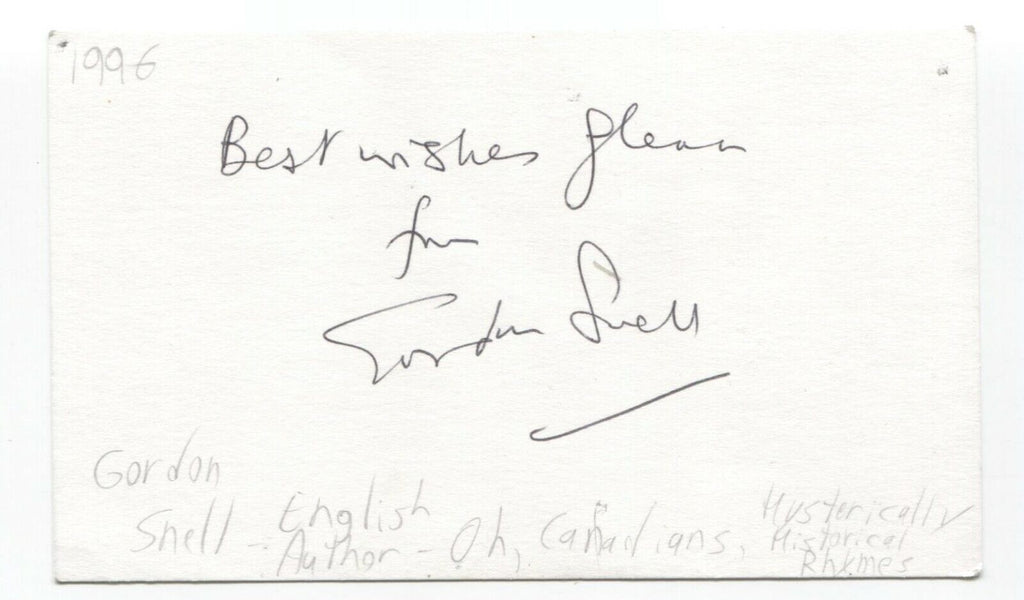 1996
Best wishes Glenn
from
Gordon Snell
Gordon
Snell - English Author - Oh, Canadians, Hysterically Historical Rhymes